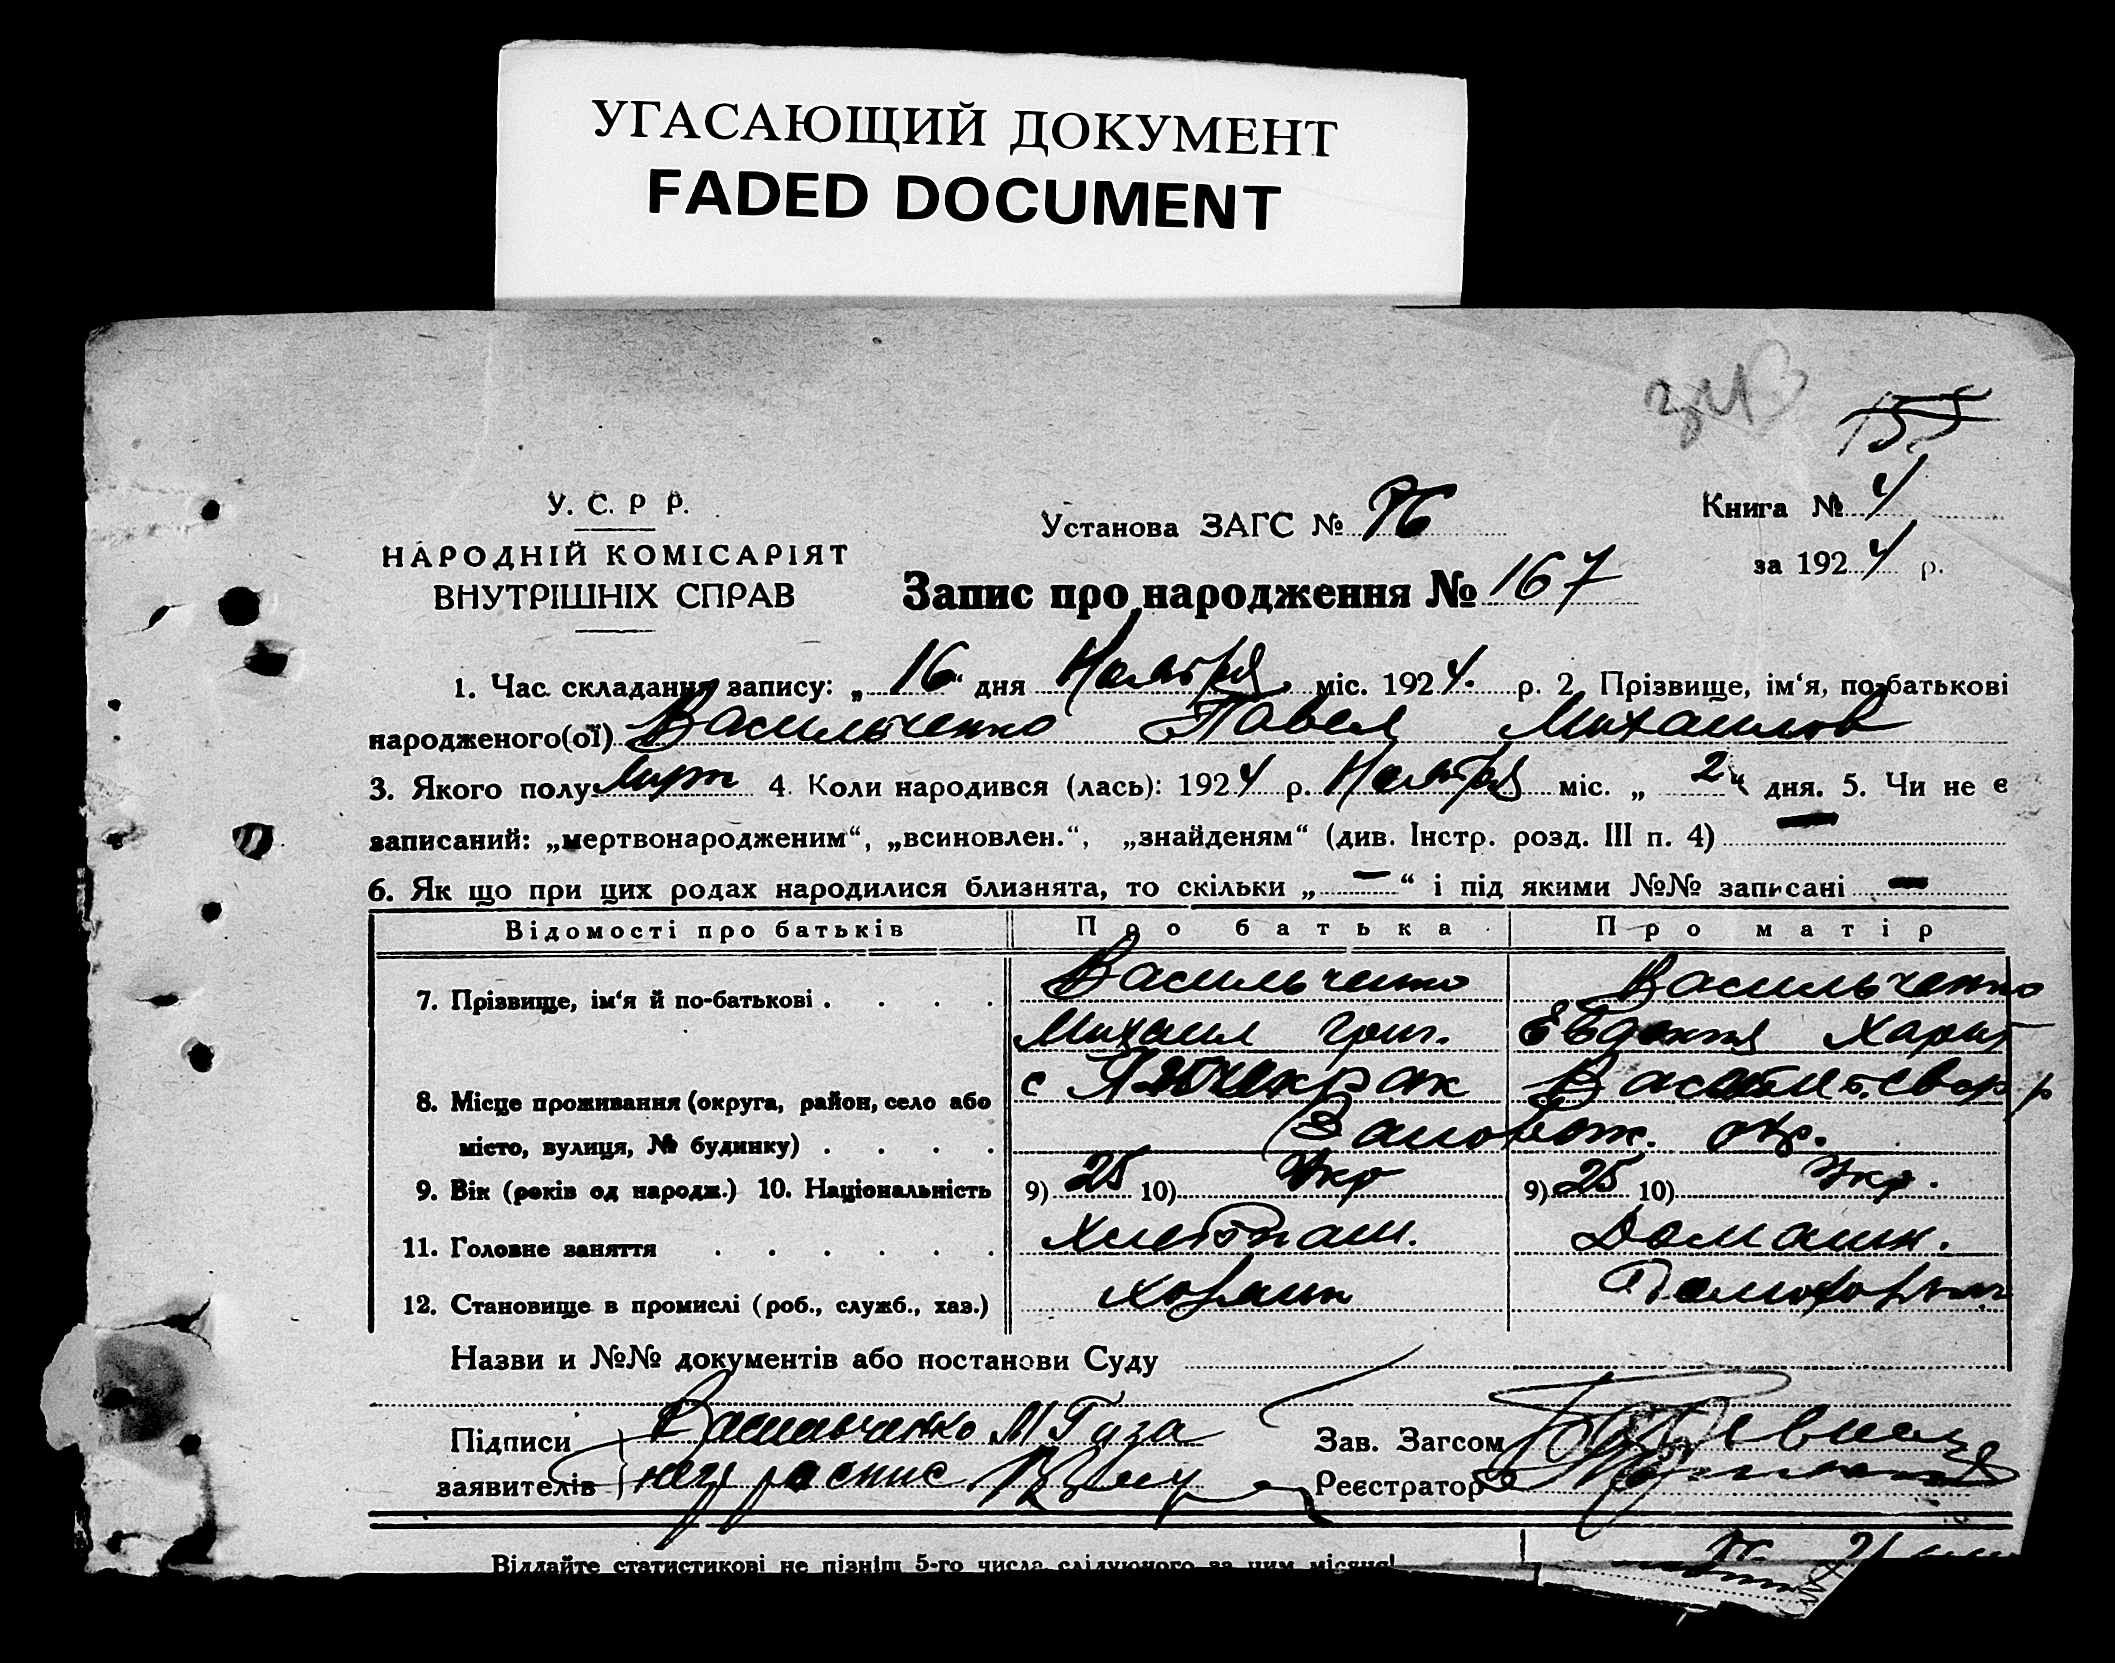 УГАСАЮЩИЙ ДОКУМЕНТ
FADED DOCUMENT
343
155
У. С. Р Р.
НАРОДНІЙ КОМІСАРІЯТ
ВНУТРІШНІХ СПРАВ
Установа ЗАГС № 76
Книга № 4
за 1924 р.
Запис про народження № 167
1. Час складання запису: „16“ дня Ноября міс. 1924. р. 2 Прізвище, ім‘я, по-батькові
народженого(ої) Васильченко Павел Михаилов
3. Якого полу 4. Коли народився (лась): 1924 р. Ноября міс. „ 2 дня. 5. Чи не є
записаний: „мертвонародженим“, „всиновлен.“, „знайденям“ (див. Інстр. розд. III п. 4) —
6. Як що при цих родах народилися близнята, то скільки „ — “ і під якими №№ записані —
Відомості про батьків Про батька Про матір
7. Прізвище, ім‘я й по-батькові . . . . Васильченко Васильченко
Михаил Григ. Евдокия Харит
8. Місце проживання (округа, район, село або с
місто, вулиця, № будинку) . . . . Запорож. окр.
9. Вік (років од народж.) 10. Національність 9) 25 10) Укр 9) 25 10) Укр.
11. Головне заняття . . . . . . Хлебопаш. Домашн.
12. Становище в промислі (роб., служб., хаз.) хозяин
Назви и №№ документів або постанови Суду
Підписи Васильченко М Гуза Зав. Загсом
заявителів Реєстратор
Віддайте статистикові не пізніш 5-го числа слідуючого за цим місяця!